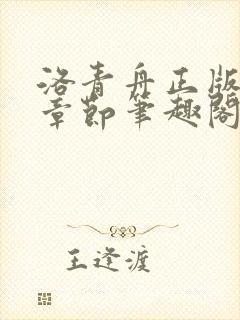 洛青舟正版
章節筆趣閣
王逢渡